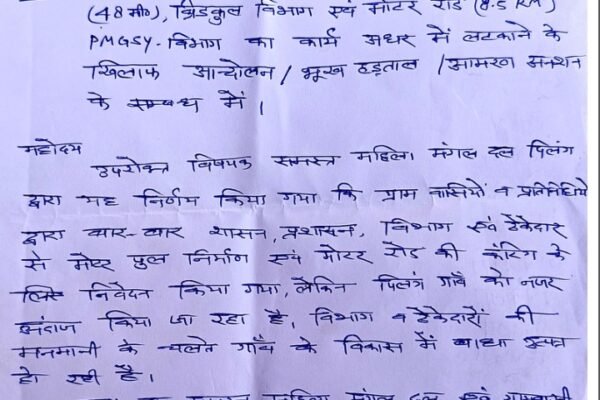 (48 मी०), ब्रिडकुल विभाग एवं मोटर रोड (8.5 KM)
PMGSY-विभाग का कार्य अधर में लटकाने के
खिलाफ आन्दोलन / भूख हड़ताल / आमरण अनशन
के सम्बन्ध में।
महोदय
उपरोक्त विषयक समस्त महिला मंगल दल पिलंग
द्वारा यह निर्णय किया गया कि ग्राम वासियों व प्रतिनिधियों
द्वारा बार-बार शासन, प्रशासन, विभाग एवं ठेकेदार
से मोटर पुल निर्माण एवं मोटर रोड की कटिंग के
लिए निवेदन किया गया, लेकिन पिलंग गाँव को नजर
अंदाज किया जा रहा है, विभाग व ठेकेदारों की
मनमानी के चलते गाँव के विकास में बाधा उत्पन्न
हो रही है।
महिला मंगल दल एवं ग्रामवासी